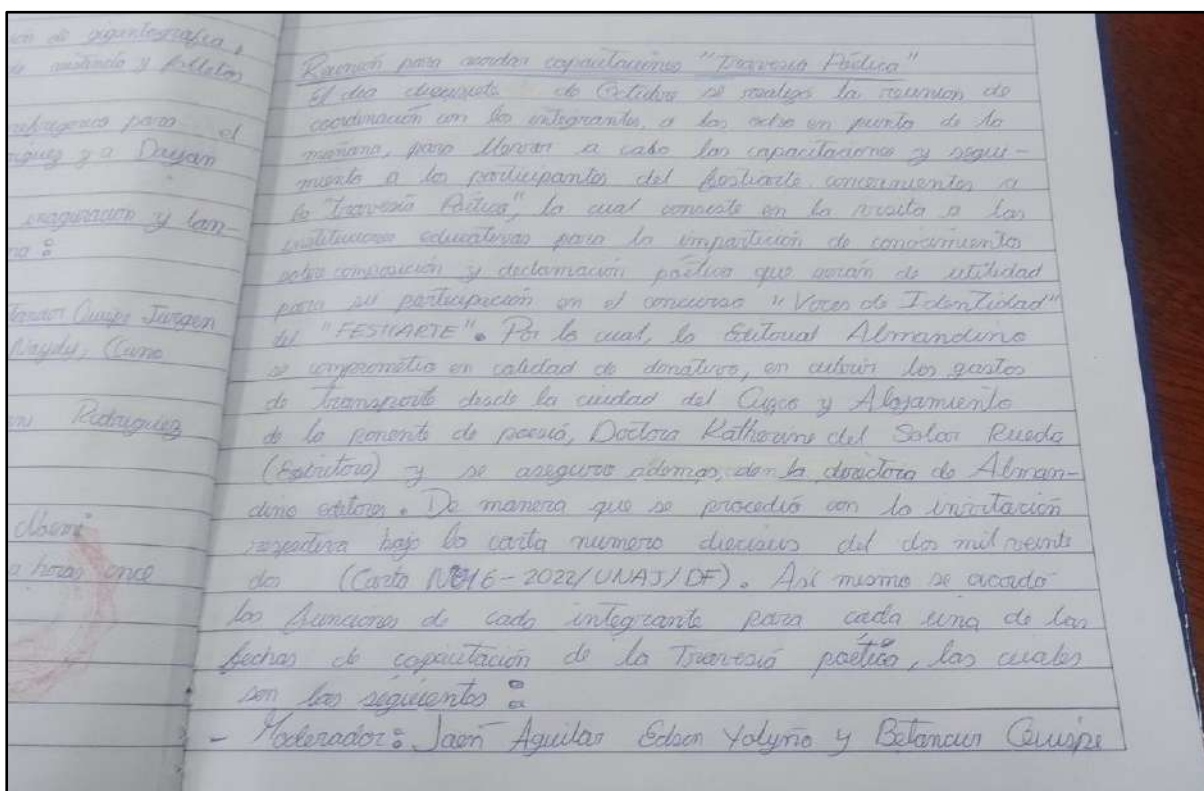 on de gigantografia,
y folletos
para el
y a Dayan
y tam-
na :
Quispe Jurgen
Naydu, Cuno
Rodriguez
Noemi
a horas once
Reunión para acordar capacitaciones "Travesía Poética"
El dia de Octubre se realizó la reunion de
coordinación con los integrantes, a las ocho en punto de la
mañana, para llevar a cabo las capacitaciones y segui-
miento a los participantes del festiarte concernientes a
la "travesía Poética", la cual consiste en la visita a las
instituciones educativas para la impartición de conocimientos
sobre composición y declamación poética que serán de utilidad
para su participación en el concurso "Voces de Identidad"
del "FESTIARTE". Por lo cual, la Editorial Almandino
se comprometió en calidad de donativo, en cubrir los gastos
de transporte desde la ciudad del Cusco y Alojamiento
de la ponente de poesía, Doctora Katherine del Solar Rueda
(Escritora) y se aseguro ademas, de la directora de Alman-
dino editores. De manera que se procedió con la invitación
respectiva bajo la carta numero dieciseis del dos mil veinte
dos (Carta N°16-2022/UNAJ/DF). Asi mismo se acordó
las funciones de cada integrante para cada una de las
fechas de capacitación de la Travesía poética, las cuales
son las siguientes :
- Moderador: Jaén Aguilar Edson Yolyño y Betancur Quispe